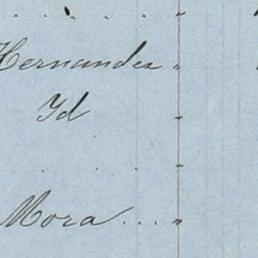 . . . . . . "
Hernandez "
Id "
. . "
Mora . . . "